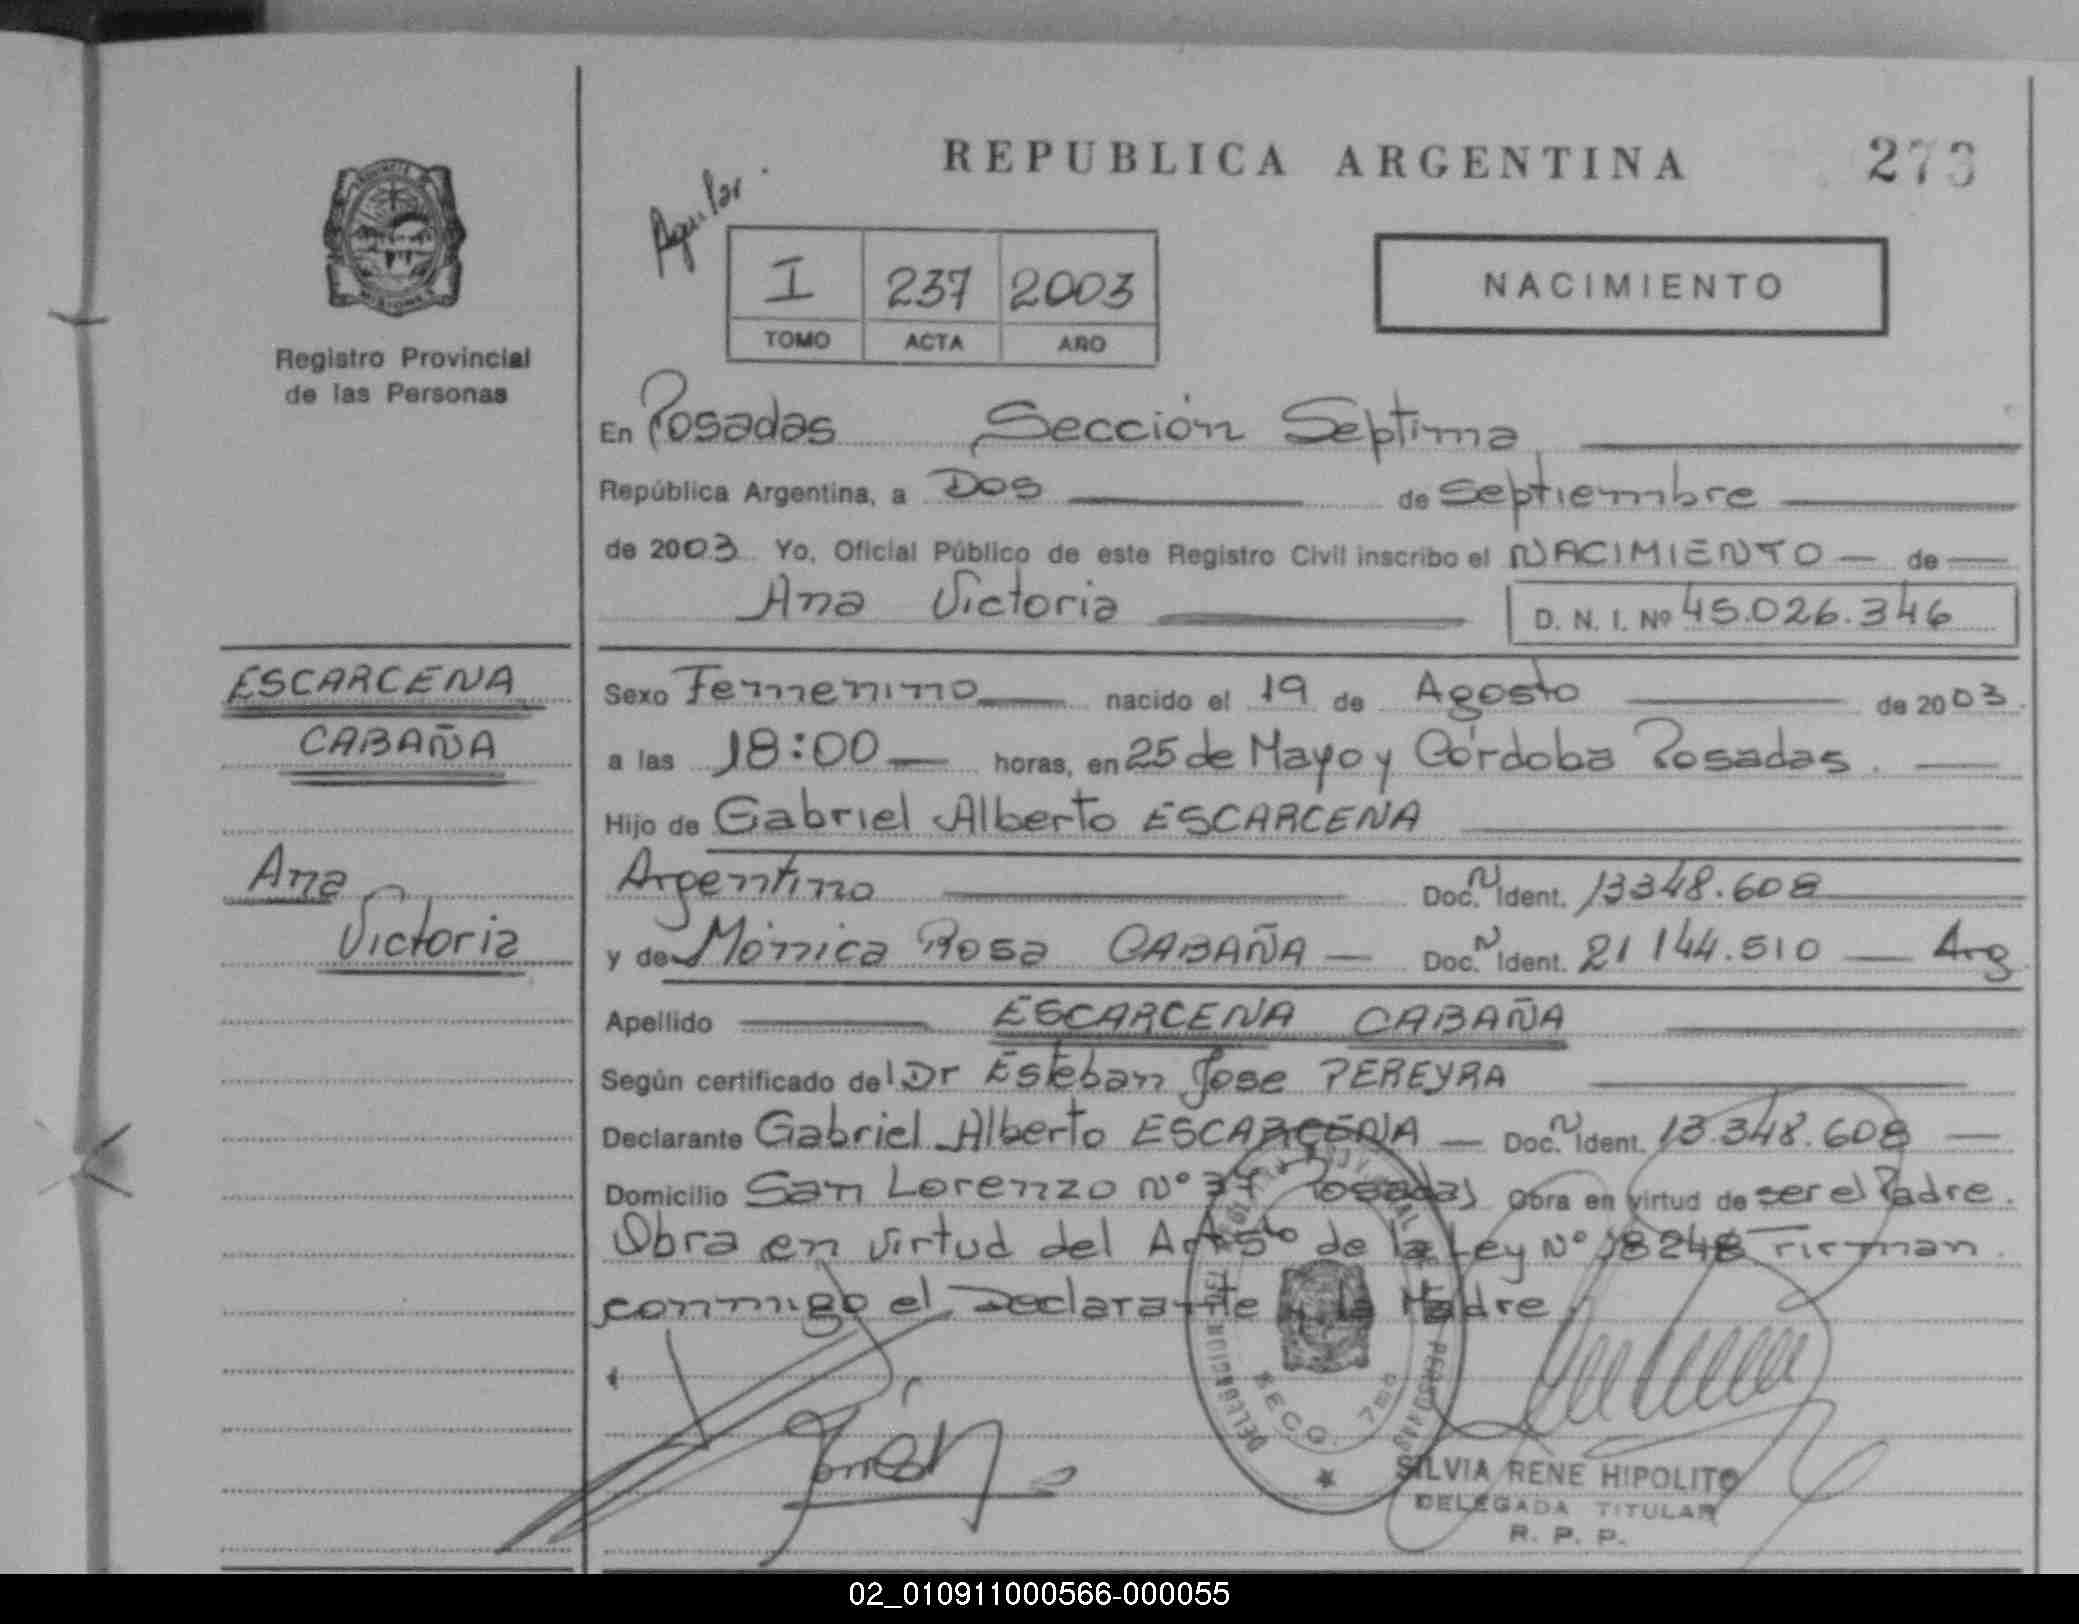 REPUBLICA ARGENTINA
273
Aguilar
I 237 2003
TOMO ACTA AÑO
NACIMIENTO
Registro Provincial
de las Personas
En Posadas Sección Septima
República Argentina, a Dos de Septiembre
de 2003 Yo, Oficial Público de este Registro Civil inscribo el NACIMIENTO de
Ana Victoria
D. N. I. Nº 45.026.346
ESCARCENA
CABAÑA
Ana
Victoria
Sexo Femenino nacido el 19 de Agosto de 2003
a las 18:00 horas, en 25 de Mayo y Córdoba Posadas.
Hijo de Gabriel Alberto ESCARCENA
Argentino Doc. N Ident. 13348.608
y de Mónica Rosa CABAÑA Doc. N Ident. 21 144.510 Arg
Apellido ESCARCENA CABAÑA
Según certificado del Dr Esteban Jose PEREYRA
Declarante Gabriel Alberto ESCARCENA Doc. N Ident. 13.348.608
Domicilio San Lorenzo Nº 37 Posadas Obra en virtud de ser el Padre.
Obra en virtud del Art 5to de la Ley Nº 18248 Firman
conmigo el Declarante y la Madre
DELEGACION
SECC. 7ma
SILVIA RENE HIPOLITO
DELEGADA TITULAR
R. P. P.
02_010911000566-000055